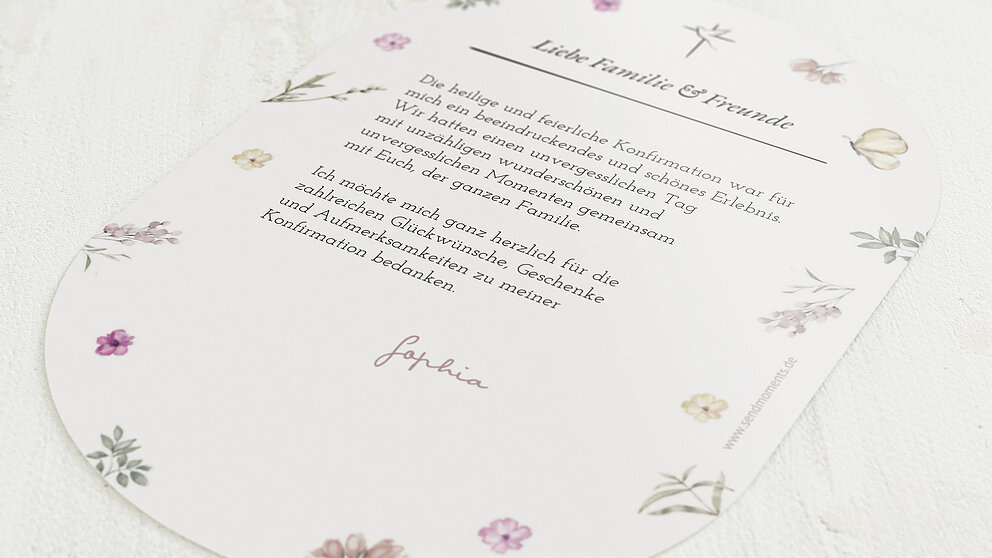 Liebe Familie & Freunde
Die heilige und feierliche Konfirmation war für
mich ein beeindruckendes und schönes Erlebnis.
Wir hatten einen unvergesslichen Tag
mit unzähligen wunderschönen und
unvergesslichen Momenten gemeinsam
mit Euch, der ganzen Familie.
Ich möchte mich ganz herzlich für die
zahlreichen Glückwünsche, Geschenke
und Aufmerksamkeiten zu meiner
Konfirmation bedanken.
Sophia
www.sendmoments.de